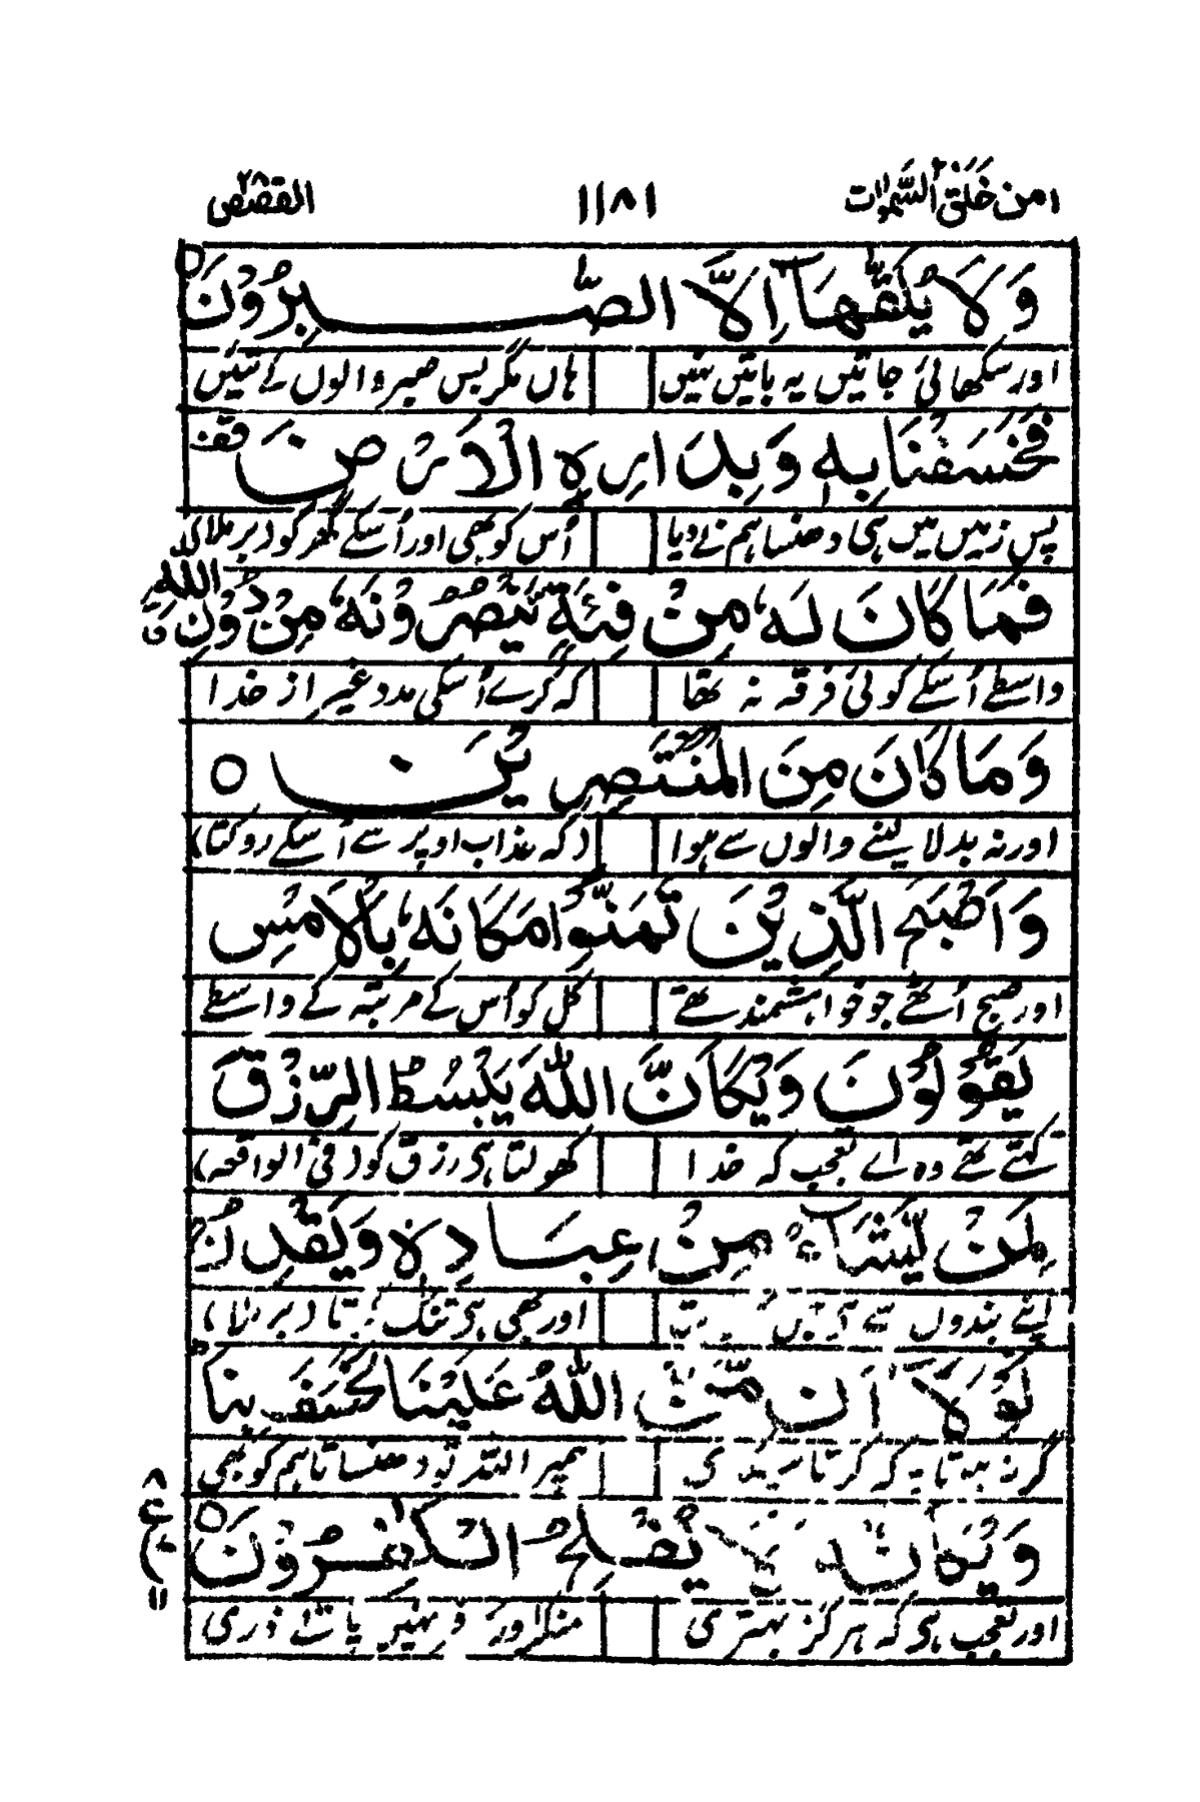 امن خلق السمٰوٰت ٢٠ ١١٨١ القصص ٢٨
وَلَا يُلَقّٰىهَآ اِلَّا الصّٰبِرُوْنَ ○
اور سکھائی جائیں یہ باتیں نہیں ہاں مگر بس صبر والوں کے تئیں
فَخَسَفْنَا بِهٖ وَبِدَارِهِ الْاَرْضَ قف
پس زمیں میں ہی دھنسا ہم نے دیا اُس کو بھی اور اُسکے گھر کو (برملا)
فَمَا كَانَ لَهٗ مِنْ فِئَةٍ يَّنْصُرُوْنَهٗ مِنْ دُوْنِ اللّٰهِ ق
واسطے اُسکے کوئی فرقہ نہ تھا کہ کرے اُسکی مدد غیر از خدا
وَمَا كَانَ مِنَ الْمُنْتَصِرِيْنَ ○
اور نہ بدلا لینے والوں سے ہوا (کہ عذاب اوپر سے اُسکے روکتا)
وَاَصْبَحَ الَّذِيْنَ تَمَنَّوْا مَكَانَهٗ بِالْاَمْسِ
اور صبح اُٹھے جو خواہشمند تھے کل کو اُس کے مرتبہ کے واسطے
يَقُوْلُوْنَ وَيْكَاَنَّ اللّٰهَ يَبْسُطُ الرِّزْقَ
کہتے تھے وہ اے تعجب کہ خدا کھولتا ہی رزق کو (فی الواقعہ)
لِمَنْ يَّشَآءُ مِنْ عِبَادِهٖ وَيَقْدِرُ ج
اپنے بندوں سے اور بھی ہی تنگ (برملا)
لَوْلَآ اَنْ مَّنَّ اللّٰهُ عَلَيْنَا لَخَسَفَ بِنَا
گر نہ کہ کرتا ہمپر اللہ تو دھنساتا ہم کو بھی
وَيْكَاَنَّهٗ لَا يُفْلِحُ الْكٰفِرُوْنَ ○
اور تعجب ہی کہ ہرگز بہتری ذری
٨
ع
١١